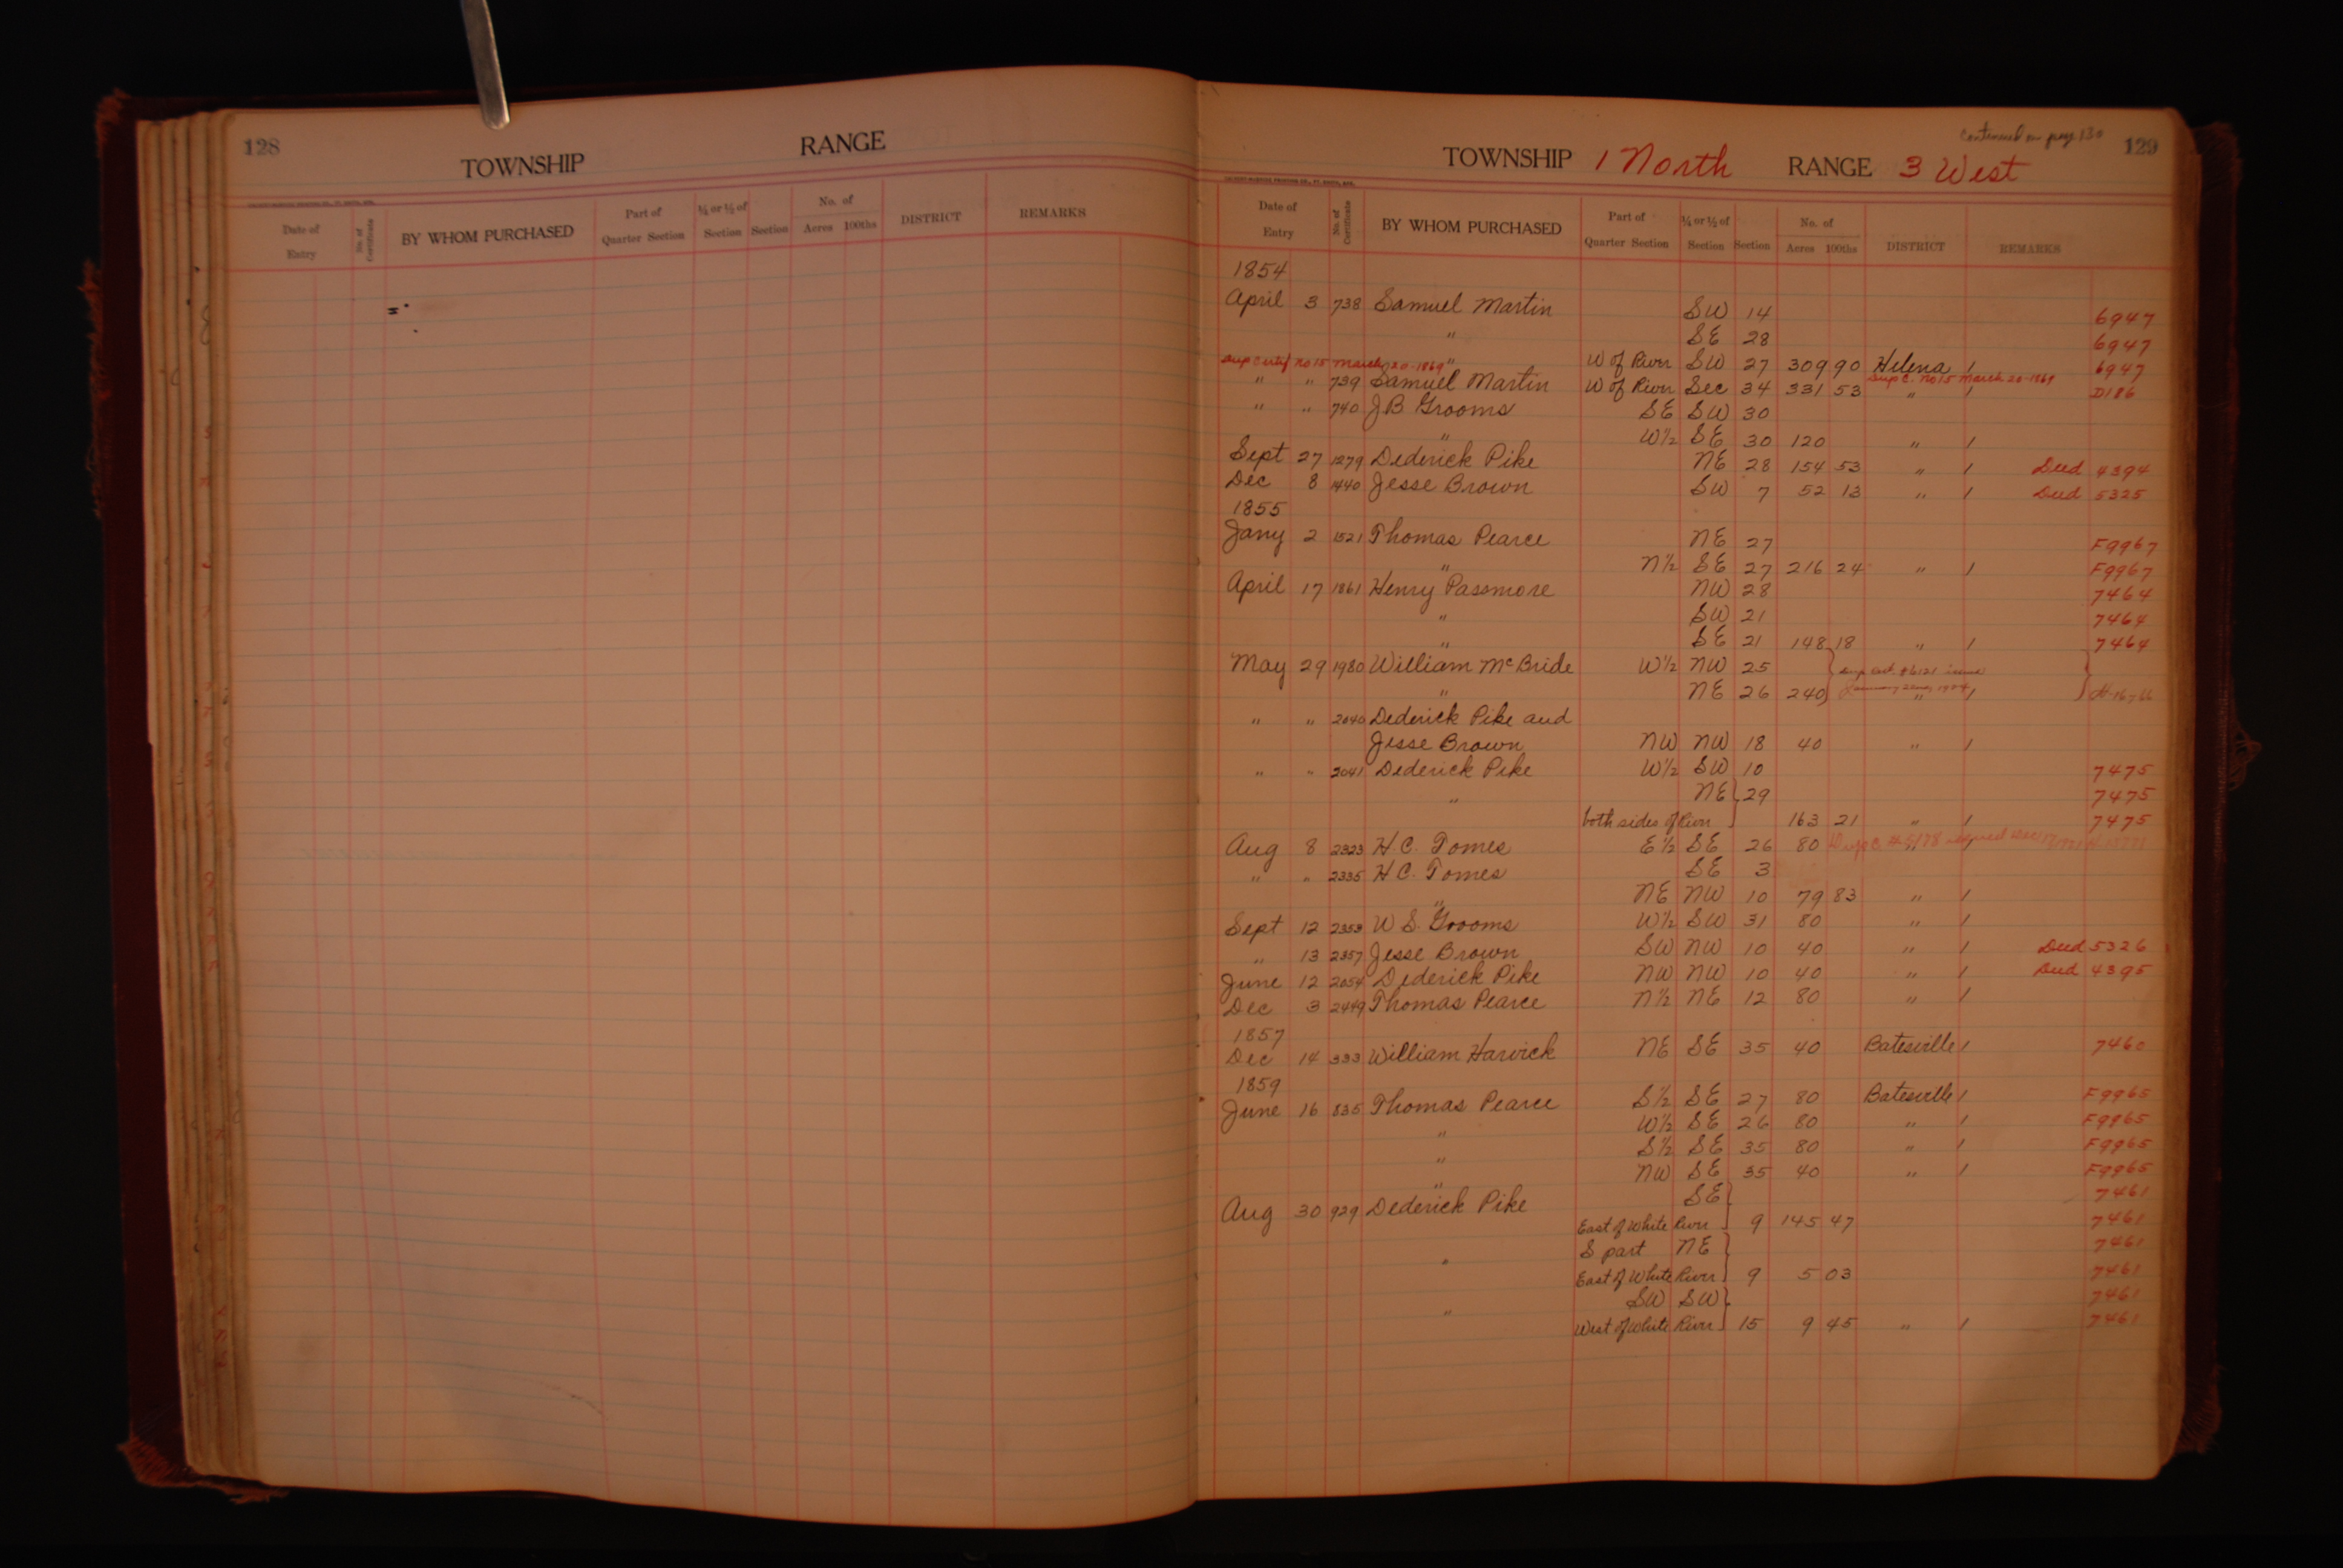 128
TOWNSHIP RANGE
Date of Entry No. of Certificate BY WHOM PURCHASED Part of Quarter Section ¼ or ½ of Section Section No. of Acres 100ths DISTRICT REMARKS
Continued on pag 130
129
TOWNSHIP 1 North RANGE 3 West
Date of Entry No. of Certificate BY WHOM PURCHASED Part of Quarter Section ¼ or ½ of Section Section No. of Acres 100ths DISTRICT REMARKS
1854
April 3 738 Samuel Martin SW 14 6947
" SE 28 6947
Dup Certif No 15 March 20-1869 " W of River SW 27 309 90 Helena 1 6947
Dup C. No 15 March 20-1869
" " 739 Samuel Martin W of River Sec 34 331 53 " 1 D186
" " 740 J B Grooms SE SW 30
" W½ SE 30 120 " 1
Sept 27 1279 Dederick Pike NE 28 154 53 " 1 Deed 4394
Dec 8 1440 Jesse Brown SW 7 52 13 " 1 Deed 5325
1855
Jany 2 1521 Thomas Pearce NE 27 F9967
" N½ SE 27 216 24 " 1 F9967
April 17 1861 Henry Passmore NW 28 7464
" SW 21 7464
" SE 21 148 18 " 1 7464
May 29 1980 William McBride W½ NW 25
" NE 26 240 " 1
" " 2040 Dederick Pike and
Jesse Brown NW NW 18 40 " 1
" " 2041 Dederick Pike W½ SW 10 7475
" NE 29 7475
both sides of River 163 21 " 1 7475
Aug 8 2323 H.C. Tomes E½ SE 26 80 Dup C #
" " 2335 H.C. Tomes SE 3
" NE NW 10 79 83 " 1
Sept 12 2353 W S. Grooms W½ SW 31 80 " 1
" 13 2357 Jesse Brown SW NW 10 40 " 1 Deed 5326
June 12 2054 Dederick Pike NW NW 10 40 " 1 Deed 4395
Dec 3 2449 Thomas Pearce N½ NE 12 80 " 1
1857
Dec 14 333 William Harvick NE SE 35 40 Batesville 1 7460
1859
June 16 835 Thomas Pearce S½ SE 27 80 Batesville 1 F9965
" W½ SE 26 80 " 1 F9965
" S½ SE 35 80 " 1 F9965
" NW SE 35 40 " 1 F9965
Aug 30 929 Dederick Pike SE 7461
East of White River 9 145 47 7461
" S part NE 7461
East of White River 9 5 03 7461
" SW SW 7461
West of White River 15 9 45 " 1 7461